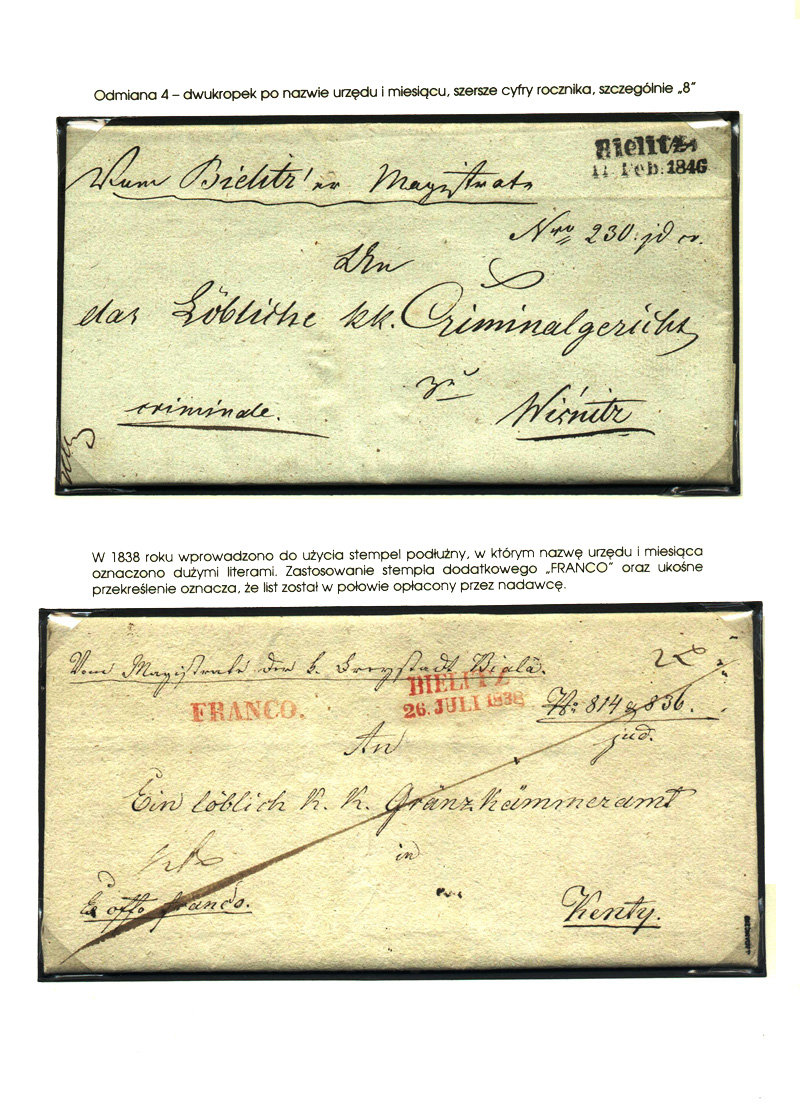 Odmiana 4 – dwukropek po nazwie urzędu i miesiącu, szersze cyfry rocznika, szczególnie „8”
Bielitz:
11. Feb:1846
Vom Bielitz'er Magistrate
Nro 230. jd
An
das Löbliche kk. Criminalgericht
zu
criminale.
Wisnitz
W 1838 roku wprowadzono do użycia stempel podłużny, w którym nazwę urzędu i miesiąca
oznaczono dużymi literami. Zastosowanie stempla dodatkowego „FRANCO” oraz ukośne
przekreślenie oznacza, że list został w połowie opłacony przez nadawcę.
Vom Magistrate der k. Freystadt Biala.
BIELITZ
FRANCO.
26. JULI 1838
No 814 & 836.
jud.
An
Ein löblich K. K. Gränzkämmeramt
in
Ex offo franco.
Kenty.